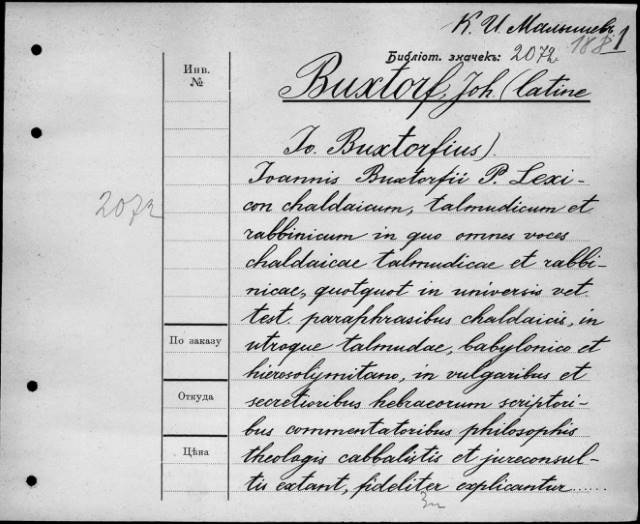 К. И. Малышевъ
188 1
Библіот. значекъ: 2072
Инв.
№
Buxtorf, Joh. (latine
Io. Buxtorfius).
2072
Ioannis Buxtorfii P. Lexi-
con chaldaicum, talmudicum et
rabbinicum in quo omnes voces
chaldaicae talmudicae et rabbi-
nicae, quotquot in universis vet.
test. paraphrasibus chaldaicis, in
По заказу
utroque talmudae, babylonico et
hierosolymitano, in vulgaribus et
Откуда
secretioribus hebraeorum scriptori-
bus commentatoribus philosophis
Цѣна
theologis cabbalistis et jureconsul-
tis extant, fideliter explicantur......